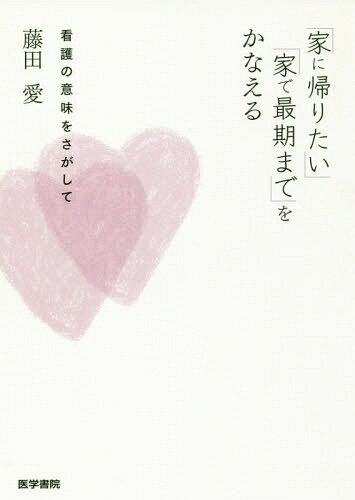 「家に帰りたい」
「家で最期まで」を
かなえる
看護の意味をさがして
藤田 愛
医学書院